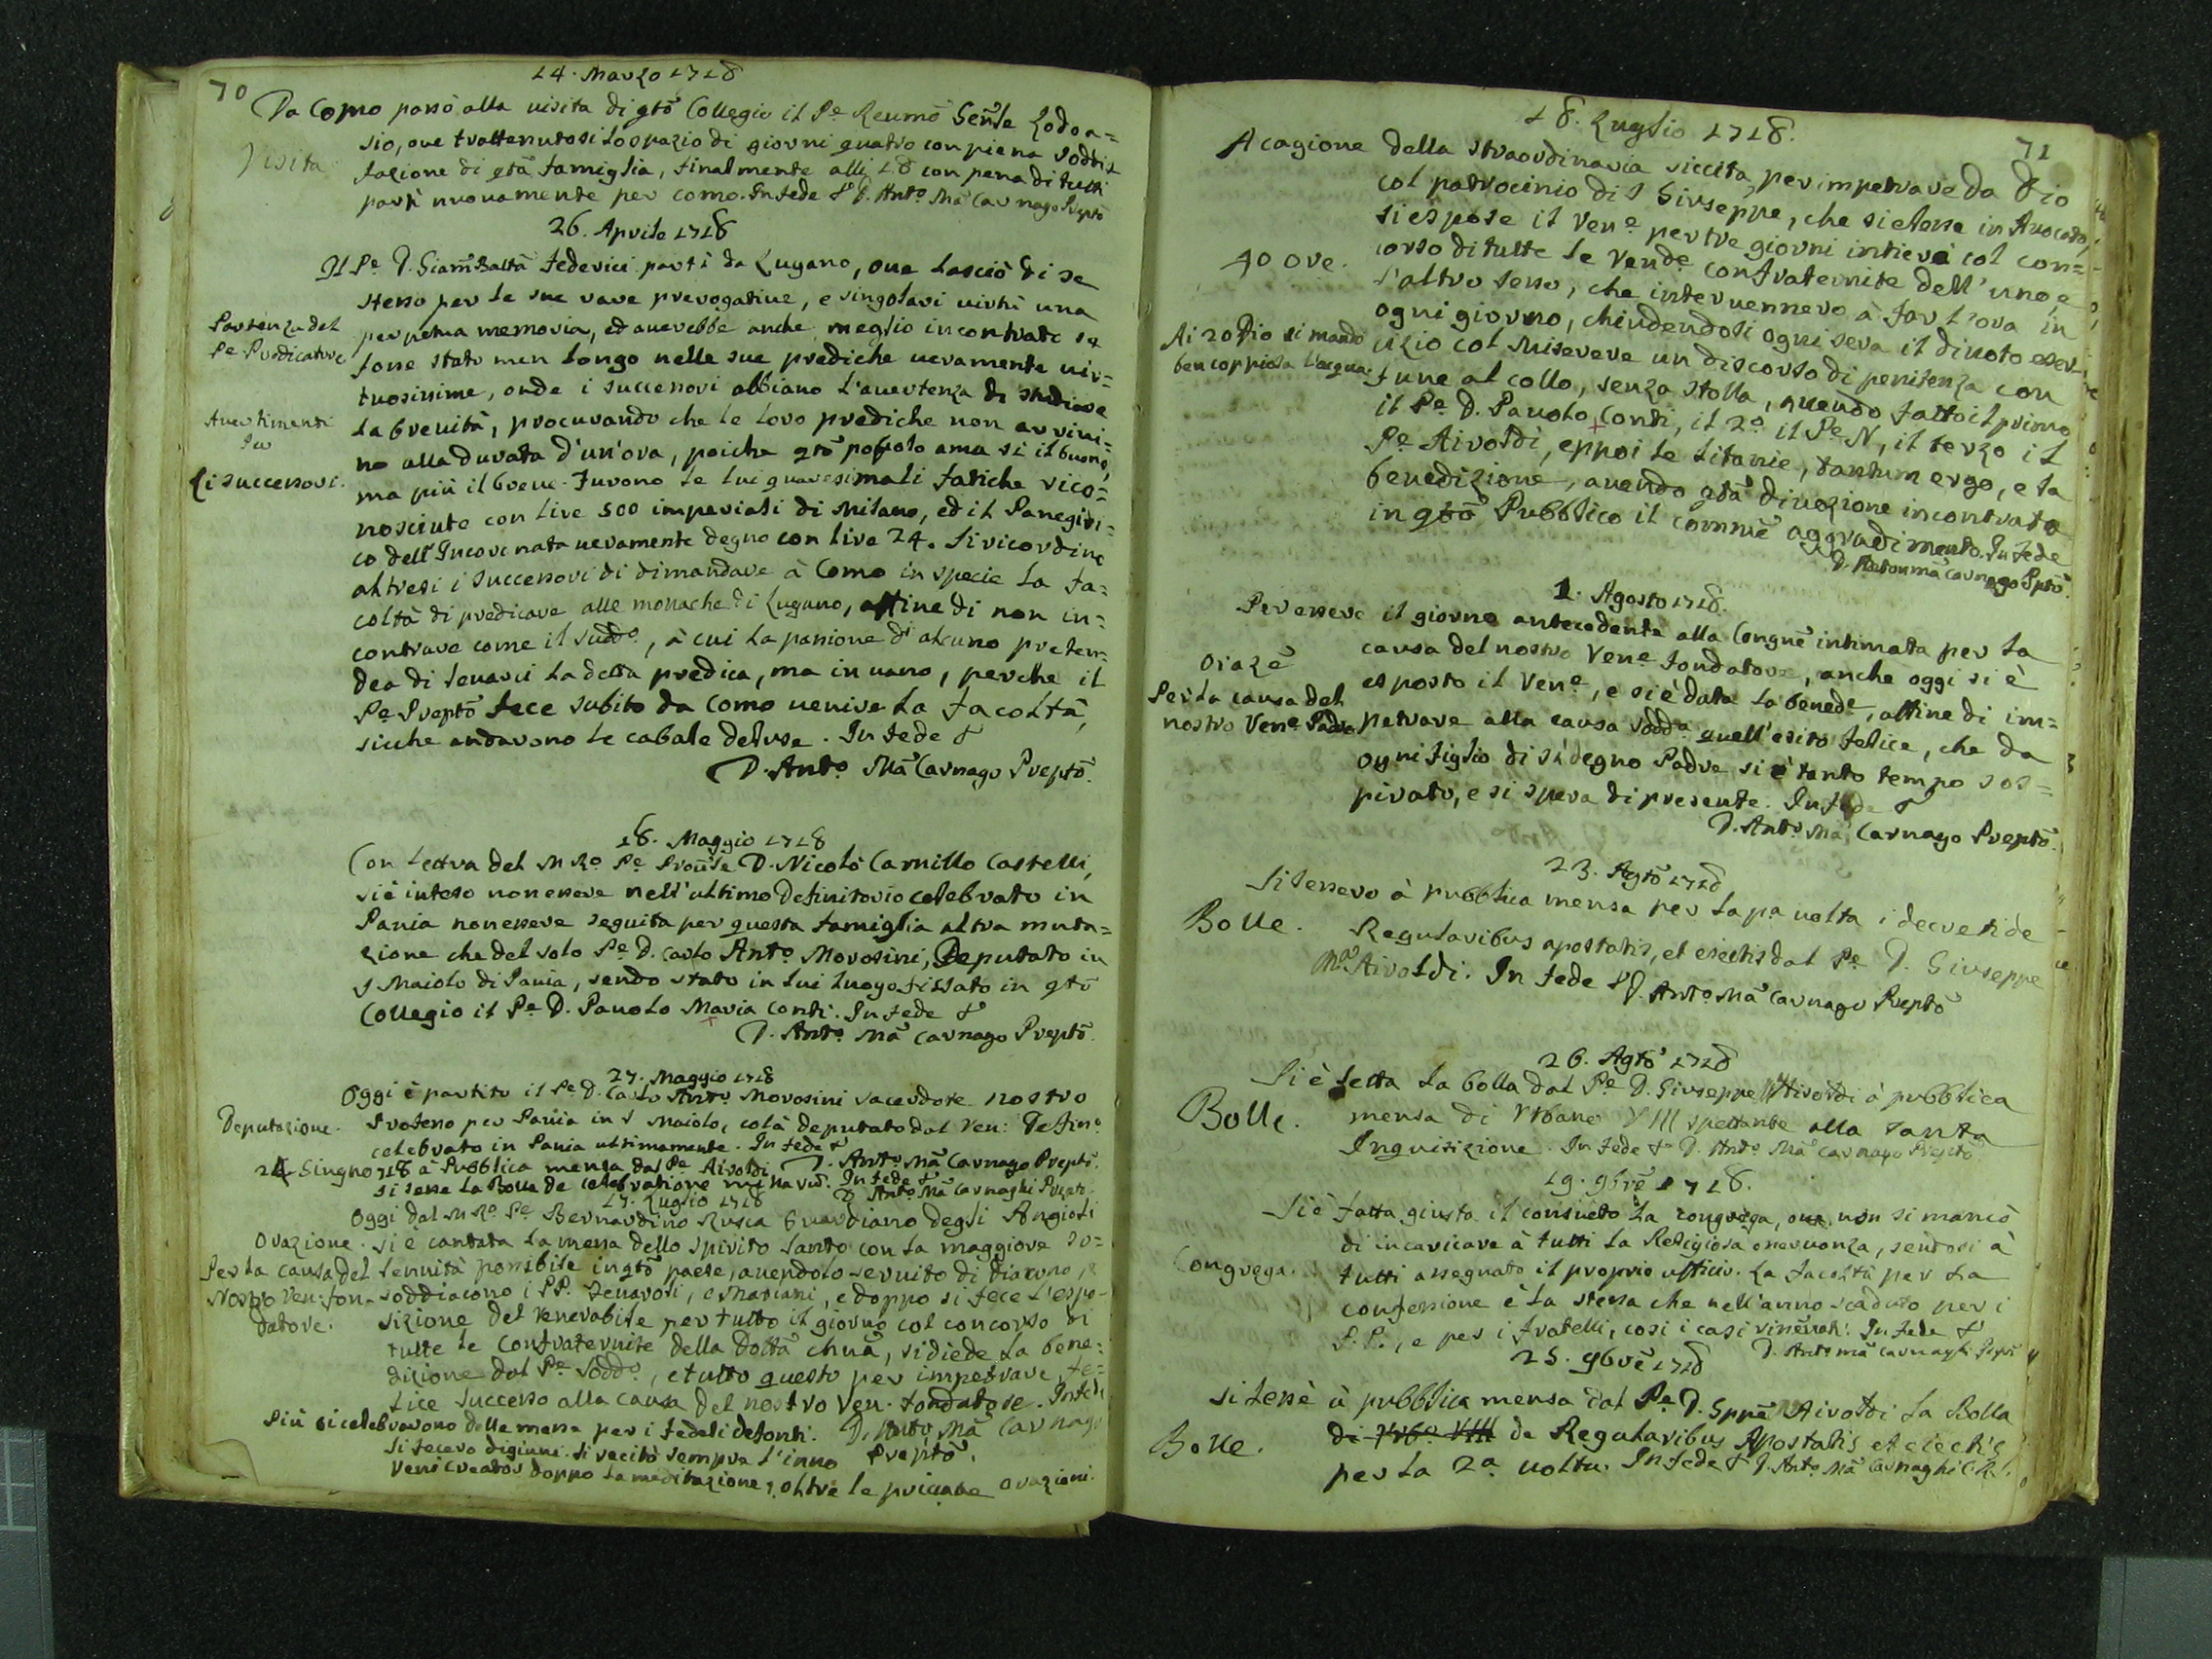 70
14. Marzo 1718
Da Como passò alla uisita di qtō Collegio il Pe Reumō Genle Lodoa=
Visita
sio, oue trattenutosi lo spazio di giorni quatro con piena soddis
fazione di qtā famiglia, finalmente alli 18 con pena di tutti
partì nuouamente per como. In fede & D. Anto Mā Carnago Preptō
26. Aprile 1718
Il Pe D. Giam̄Battā Federici partì da Lugano, oue lasciò di se
stesso per le sue rare prerogatiue, e singolari uirtù una
Partenza del
perpetua memoria, ed auerebbe anche meglio incontrato se
Pe Predicatore
fosse stato men longo nelle sue prediche ueramente uir=
tuosissime, onde i successori abbiano l'auertenza di studiare
Auertimenti
la breuità, procurando che le loro prediche non arriui=
per
no alla durata d'un'ora, poiche qtō popolo ama si il buono,
li successori.
ma più il breue. Furono le lui quaresimali fatiche rico=
nosciute con lire 500 imperiali di Milano, ed il Panegiri=
co dell'Incoronata ueramente degno con lire 24. Si ricordino
altresi i successori di dimandare à Como in specie la fa=
coltà di predicare alle monache di Lugano, affine di non in=
contrare come il suddo, à cui la passione di alcuno preten=
dea di leuarci la detta predica, ma in uano, perche il
Pe Preptō fece subito da Como uenire la facoltà,
sicche andarono le cabale deluse. In fede &
D. Anto Mā Carnago Preptō.
18. Maggio 1718
Con lettra del M Ro Pe Prounle D. Nicolò Camillo Castelli,
siè inteso non essere nell'ultimo Definitorio celebrato in
Pauia non essere seguita per questa famiglia altra muta=
zione che del solo Pe D. Carlo Anto Morosini, Deputato in
S Maiolo di Pauia, sendo stato in lui luogo fissato in qtō
Collegio il Pe D. Pauolo Maria Conti. In fede &
D. Anto Mā Carnago Preptō.
27. Maggio 1718
Oggi è partito il Pe D. Carlo Anto Morosini sacerdote nostro
Deputazione.
Professo per Pauia in S Maiolo, colà deputato dal Ven: Defino
celebrato in Pauia ultimamente. In fede &
D. Anto Mā Carnago Preptō.
24 Giugno 718 à Pubblica mensa dal Pe Airoldi
si lesse la Bolla de celebratione missarū. In fede &
D Anto Mā Carnaghi Prepto.
17. Luglio 1718
Oggi dal M Ro Pe Bernardino Rusca Guardiano degli Angioli
Orazione.
si è cantata la messa dello Spirito Santo con la maggiore so=
Per la causa del
lennità possibile in qtō paese, auendolo seruito di diacono, e
Nostro Ven: fon-
soddiacono i PP. Zenaroli, e Mariani, e doppo si fece l'espo-
datore.
sizione del Venerabile per tutto il giorno col concorso di
tutte le confraternite della dottā chuā, si diede la bene=
dizione dal Pe Soddo, e tutto questo per impetrare fe=
lice successo alla causa del nostro Ven. fondatore. In fede
Più si celebrarono delle messe per i fedeli defonti.
D. Anto Mā Carnago
Preptō.
si fecero digiuni. si recitò sempre l'inno
Veni creator doppo la meditazione, oltre le priuate orazioni.
71
18. Luglio 1718.
A cagione della straordinaria siccità, per impetrare da Dio
col patrocinio di S Giuseppe, che si elesse in Auocato,
si espose il Vene per tre giorni intieri col con=
40 ore.
corso di tutte le Vende confraternite dell'uno, e
l'altro sesso, che interuennero à far l'ora in
ogni giorno, chiudendosi ogni sera il diuoto eser
Ai 20 Dio si mandò
cizio col Miserere un discorso di penitenza con
ben coppiosa l'acqua.
fune al collo, senza stolla, auendo fatto il primo
il Pe D. Pauolo Conti, il 2o il Pe N, il terzo il
Pe Airoldi, eppoi le litanie, tantum ergo, e la
benedizione, auendo qtā diuozione incontrato
in qtō Pubblico il comune aggradimento. In fede
D. Anton Mā Carnago Pptō.
1. Agosto 1718.
Per essere il giorno antecedente alla Congne intimata per la
causa del nostro Vene fondatore, anche oggi si è
Oraze
esposto il Vene, e si è data la benede, affine di im=
Per la causa del
petrare alla causa sodda quell'esito felice, che da
nostro Vene Padre
ogni figlio di sì degno Padre si è tanto tempo sos=
pirato, e si spera di presente. In fede &
D. Anto Mā Carnago Preptō.
23. Agtō 1718
Si lessero à pubblica mensa per la pa uolta i decreti de
Bolle.
Regularibus apostatis, et eiectis dal Pe D. Giuseppe
Ma Airoldi. In fede & D. Anto Mā Carnago Preptō
26. Agtō 1718
Si è letta la bolla dal Pe D. Giuseppe Mā Airoldi à pubblica
Bolle.
mensa di Urbano VIII spettante alla Santa
Inquisizione. In fede & D. Anto Mā Carnago Preptō
19. 9bre 1718.
Siè fatta giusta il consueto la congrega, oue non si mancò
di incaricare à tutti la Religiosa osseruanza, sendosi à
Congrega.
tutti assegnato il proprio ufficio. La facoltà per la
confessione è la stessa che nell'anno scaduto per i
P.P., e per i fratelli, cosi i casi risseruati. In fede &
D. Anto Mā Carnaghi Preptō
25. 9bre 1718
Si lesse à pubblica mensa dal Pe D. Gppe Mā Airoldi la Bolla
Bolle.
di Urbo VIII de Regularibus Apostatis et eiectis
per la 2a uolta. In fede & D. Anto Mā Carnaghi